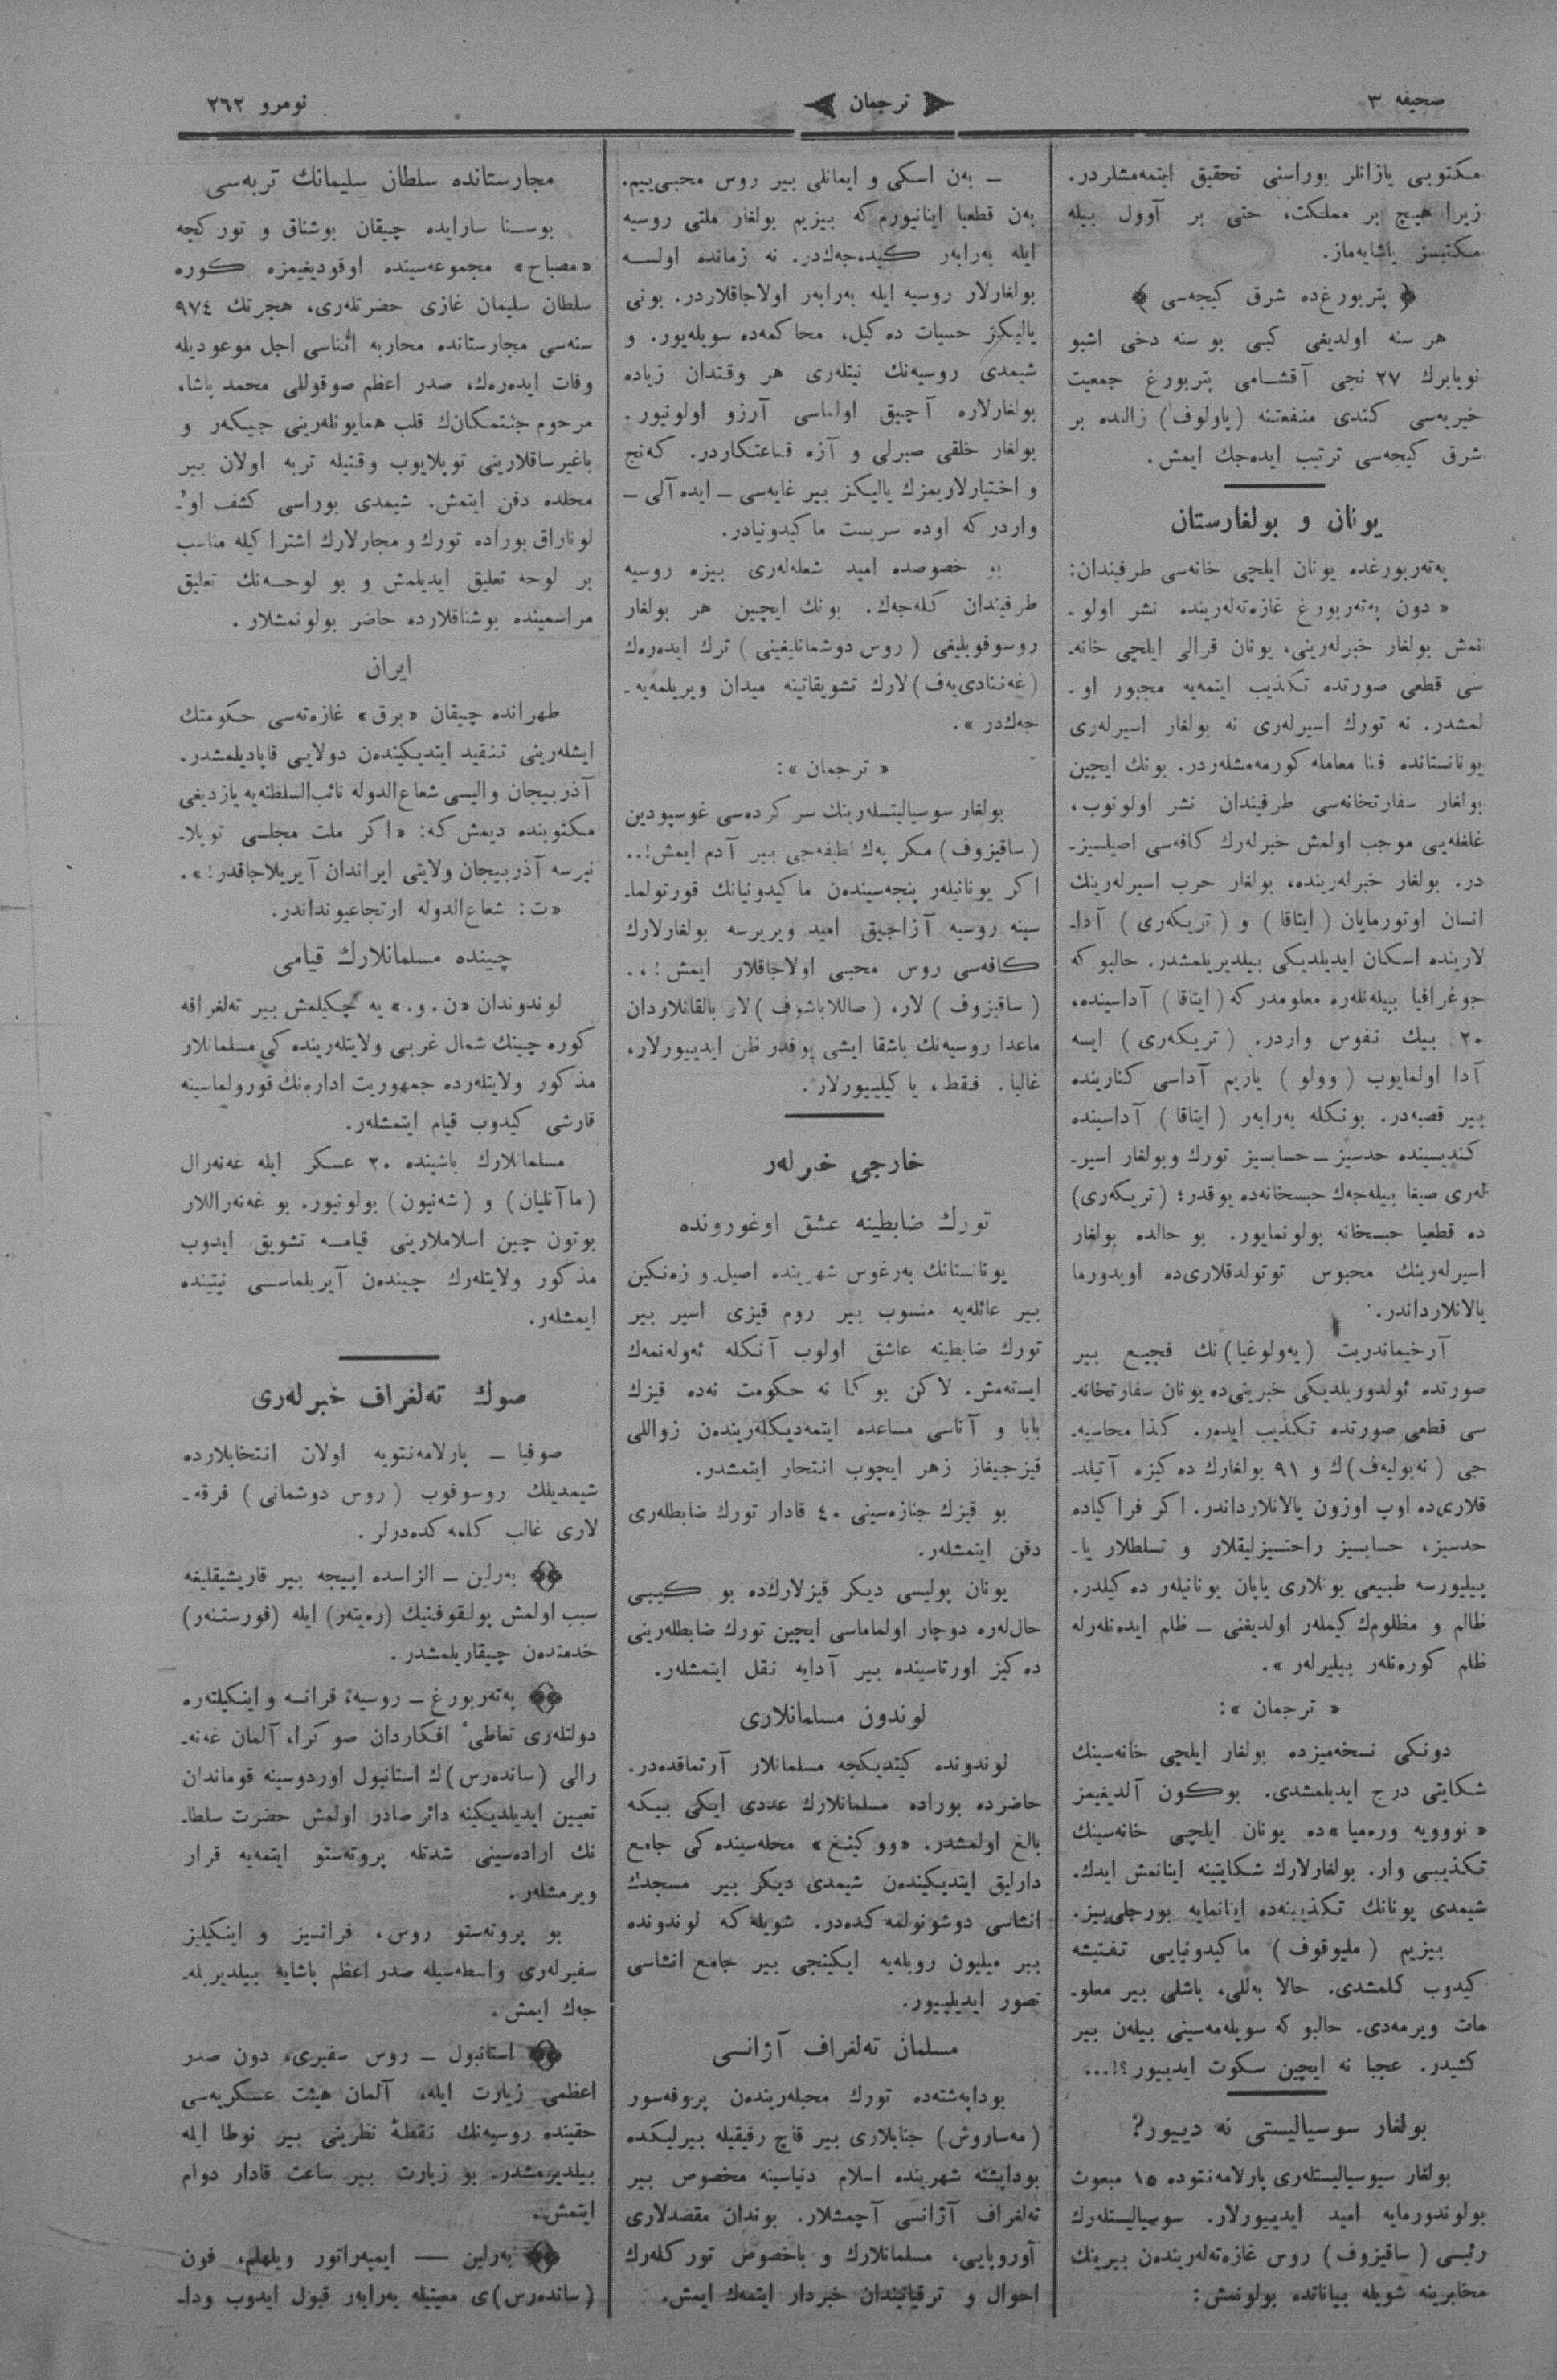 صحیفه ٣
ترجمان
نومرو ٢٦٢
مكتوبی یازانلر بوراسنی تحقیق ایتمه‌مشلردر.
زیرا هیچ بر مملكت، حتی بر آوول بیله
مكتبسز یاشایه‌ماز.
﴿ پتربورغ‌ده شرق كیجه‌سی ﴾
هر سنه اولدیغی كبی بو سنه دخی اشبو
نویابرك ٢٧ نجی آقشامی پتربورغ جمعیت
خیریه‌سی كندی منفعتنه (پاولوف) زالنده بر
شرق كیجه‌سی ترتیب ایده‌جك ایمش.
یونان و بولغارستان
په‌ته‌ربورغده یونان ایلچی خانه‌سی طرفیندان:
« دون په‌ته‌ربورغ غازه‌ته‌له‌رینده نشر اولو-
نمش بولغار خبرله‌رینی، یونان قرالی ایلچی خانه-
سی قطعی صورتده تكذیب ایتمه‌یه مجبور او-
لمشدر. نه تورك اسیرله‌ری نه بولغار اسیرله‌ری
یونانستانده فنا معامله كورمه‌مشله‌ردر. بونك ایچین
بولغار سفارتخانه‌سی طرفیندان نشر اولونوب،
غلغله‌یی موجب اولمش خبرله‌رك كافه‌سی اصیلسیز-
در. بولغار خبرله‌رینده، بولغار حرب اسیرله‌رینك
انسان اوتورمایان (ایتاقا) و (تریكه‌ری) آدا-
لارینده اسكان ایدیلدیكی بیلدیریلمشدر. حالبو كه
جوغرافیا بیله‌نله‌ره معلومدر كه (ایتاقا) آداسینده،
٢٠ بیك نفوس واردر. (تریكه‌ری) ایسه
آدا اولمایوب (وولو) یاریم آداسی كنارینده
بیر قصبه‌در. بونكله به‌رابه‌ر (ایتاقا) آداسینده
كندیسینده حدسیز - حسابسیز تورك وبولغار اسیر-
له‌ری صیغا بیله‌جه‌ك حبسخانه‌ده یوقدر؛ (تریكه‌ری)
ده قطعیا حبسخانه بولونمایور. بو حالده بولغار
اسیرله‌رینك محبوس توتولدقلاری‌ده اویدورما
یالانلارداندر.
آرخیماندریت (یه‌ولوغیا)نك فجیع بیر
صورتده ئولدوریلدیكی خبرینی‌ده یونان سفارتخانه-
سی قطعی صورتده تكذیب ایده‌ر. كذا محاسبه-
جی (نه‌بولیه‌ف)ك و ٩١ بولغارك ده‌كیزه آتیلد-
قلاری‌ده اوپ اوزون یالانلارداندر. اكر فراكیاده
حدسیز، حسابسیز راحتسیزلیقلار و تسلطلار یا-
پیلیورسه طبیعی بونلاری یاپان یونانیله‌ر ده‌كیلدر.
ظالم و مظلومك كیمله‌ر اولدیغنی - ظلم ایده‌نله‌رله
ظلم كوره‌نله‌ر بیلیرله‌ر ».
« ترجمان »:
دونكی نسخه‌میزده بولغار ایلچی خانه‌سینك
شكایتی درج ایدیلمشدی. بوكون آلدیغیمز
« نوویه وره‌میا»ده یونان ایلچی خانه‌سینك
تكذیبی وار. بولغارلارك شكایتینه اینانمش ایدك.
شیمدی یونانك تكذیبینه‌ده اینانمایه بورجلی‌ییز.
بیزیم (ملیوقوف) ماكیدونیایی تفتیشه
كیدوب كلمشدی. حالا به‌للی، باشلی بیر معلو-
مات ویرمه‌دی. حالبو كه سویله‌مه‌سینی بیله‌ن بیر
كشیدر. عجبا نه ایچین سكوت ایدییور؟!...
بولغار سوسیالیستی نه دییور؟
بولغار سیوسیالیستله‌ری پارلامه‌نتوده ١٥ مبعوث
بولوندورمایه امید ایدییورلار. سوسیالیستله‌رك
رئیسی (ساقیزوف) روس غازه‌ته‌له‌رینده‌ن بیرینك
مخابرینه شویله بیاناتده بولونمش:
- به‌ن اسكی و ایمانلی بیر روس محبی‌ییم.
به‌ن قطعیا اینانیورم كه بیزیم بولغار ملتی روسیه
ایله به‌رابه‌ر كیده‌جه‌كدر. نه زمانده اولسه
بولغارلار روسیه ایله به‌رابه‌ر اولاجاقلاردر. بونی
یالیكز حسیات ده‌كیل، محاكمه‌ده سویله‌یور. و
شیمدی روسیه‌نك نیتله‌ری هر وقتدان زیاده
بولغارلاره آچیق اولماسی آرزو اولونیور.
بولغار خلقی صبرلی و آزه قناعتكاردر. كه‌نج
و اختیارلاریمزك یالیكز بیر غایه‌سی - ایده‌آلی -
واردر كه اوده سربست ماكیدونیادر.
بو خصوصده امید شعله‌له‌ری بیزه روسیه
طرفیندان كله‌جه‌ك. بونك ایچین هر بولغار
روسوفوبلیغی (روس دوشمانلیغینی) ترك ایده‌ره‌ك
(غه‌ننادی‌یه‌ف)لارك تشویقاتینه میدان ویریلمه‌یه-
جه‌كدر ».
« ترجمان »:
بولغار سوسیالیستله‌رینك سركرده‌سی غوسپودین
(ساقیزوف) مكر په‌ك لطیفه‌جی بیر آدم ایمش!..
اكر یونانیله‌ر پنجه‌سینده‌ن ماكیدونیانك قورتولما-
سینه روسیه آزاجیق امید ویریرسه بولغارلارك
كافه‌سی روس محبی اولاجاقلار ایمش!..
(ساقیزوف) لار، (صاللاباشوف)لار بالقانلاردان
ماعدا روسیه‌نك باشقا ایشی یوقدر ظن ایدییورلار،
غالبا. فقط، یاكیلییورلار.
خارجی خبرله‌ر
تورك ضابطینه عشق اوغورونده
یونانستانك به‌رغوس شهرینده اصیل و زه‌نكین
بیر عائله‌یه منسوب بیر روم قیزی اسیر بیر
تورك ضابطینه عاشق اولوب آنكله ئه‌وله‌نمه‌ك
ایسته‌مش. لاكن بوكا نه حكومت نه‌ده قیزك
بابا و آناسی مساعده ایتمه‌دیكله‌رینده‌ن زواللی
قیزجیغاز زهر ایچوب انتحار ایتمشدر.
بو قیزك جنازه‌سینی ٤٠ قادار تورك ضابطله‌ری
دفن ایتمشله‌ر.
یونان پولیسی دیكر قیزلارك‌ده بو كیبی
حال‌له‌ره دوچار اولماماسی ایچین تورك ضابطله‌رینی
ده‌كیز اورتاسینده بیر آدایه نقل ایتمشله‌ر.
لوندون مسلمانلاری
لوندونده كیتدیكجه مسلمانلار آرتماقده‌در.
حاضرده بوراده مسلمانلارك عددی ایكی بیكه
بالغ اولمشدر. «ووكینغ» محله‌سینده‌كی جامع
دارلیق ایتدیكیندن شیمدی دیكر بیر مسجدك
انشاسی دوشونولمه‌كده‌در. شویله كه لوندونده
بیر میلیون روبله‌یه ایكینجی بیر جامع انشاسی
تصور ایدیلییور.
مسلمان ته‌لغراف آژانسی
بوداپه‌شته‌ده تورك محبله‌رینده‌ن پروفه‌سور
(مه‌ساروش) جنابلاری بیر قاچ رفیقیله بیرلیكده
بوداپشته شهرینده اسلام دنیاسینه مخصوص بیر
ته‌لغراف آژانسی آچمشلار. بوندان مقصدلاری
آوروپایی، مسلمانلارك و باخصوص توركله‌رك
احوال و ترقیاتیندان خبردار ایتمه‌ك ایمش.
مجارستانده سلطان سلیمانك تربه‌سی
بوسنا سارایده چیقان بوشناق و توركجه
«مصباح» مجموعه‌سینده اوقودیغیمزه كوره
سلطان سلیمان غازی حضرتله‌ری، هجرتك ٩٧٤
سنه‌سی مجارستانده محاربه اثناسی اجل موعودیله
وفات ایده‌ره‌ك، صدر اعظم صوقوللی محمد پاشا،
مرحوم جنتمكان‌ك قلب همایونله‌رینی جیكه‌ر و
باغیرساقلارینی توپلایوب وقتیله تربه اولان بیر
محلده دفن ایتمش. شیمدی بوراسی كشف او-
لوناراق بوراده تورك و مجارلارك اشتراكیله مناسب
بر لوحه تعلیق ایدیلمش و بو لوحه‌نك تعلیق
مراسمینده بوشناقلارده حاضر بولونمشلار.
ایران
طهرانده چیقان «برق» غازه‌ته‌سی حكومتك
ایشله‌رینی تنقید ایتدیكینده‌ن دولایی قاپادیلمشدر.
آذربیجان والیسی شعاع‌الدوله نائب‌السلطنه‌یه یازدیغی
مكتوبنده دیمش كه: «اكر ملت مجلسی توپلا-
نیرسه آذربیجان ولایتی ایراندان آیریلاجاقدر!».
«ت: شعاع‌الدوله ارتجاعیونداندر.
چینده مسلمانلارك قیامی
لوندوندان «ن. و.» یه چكیلمش بیر ته‌لغرافه
كوره چینك شمال غربی ولایتله‌رینده‌كی مسلمانلار
مذكور ولایتله‌رده جمهوریت اداره‌نك قورولماسینه
قارشی كیدوب قیام ایتمشله‌ر.
مسلمانلارك باشینده ٢٠ عسكر ایله غه‌نه‌رال
(ماآنلیان) و (شه‌نیون) بولونیور. بو غه‌نه‌راللار
بوتون چین اسلاملارینی قیامه تشویق ایدوب
مذكور ولایتله‌رك چینده‌ن آیریلماسی نیتینده
ایمشله‌ر.
صوك ته‌لغراف خبرله‌ری
صوفیا - پارلامه‌نتویه اولان انتخابلارده
شیمدیلك روسوفوب (روس دوشمانی) فرقه-
لاری غالب كلمه‌كده‌درلر.
به‌رلین - الزاسده اییجه بیر قاریشیقلیغه
سبب اولمش پولقوفنیك (ره‌یته‌ر) ایله (فورستنه‌ر)
خدمتده‌ن چیقاریلمشدر.
په‌ته‌ربورغ - روسیه، فرانسه و اینكیلته‌ره
دولتله‌ری تعاطیٔ افكاردان صوكرا، آلمان غه‌نه-
رالی (سانده‌رس)ك استانبول اوردوسینه قوماندان
تعیین ایدیلدیكینه دائر صادر اولمش حضرت سلطا-
نك اراده‌سینی شدتله پروته‌ستو ایتمه‌یه قرار
ویرمشله‌ر.
بو پروته‌ستو روس، فرانسیز و اینكیلیز
سفیرله‌ری واسطه‌سیله صدر اعظم پاشایه بیلدیریله-
جه‌ك ایمش.
استانبول - روس سفیری، دون صدر
اعظمی زیارت ایله، آلمان هیئت عسكریه‌سی
حقینده روسیه‌نك نقطهٔ نظرینی بیر نوطا ایله
بیلدیرمشدر. بو زیارت بیر ساعت قادار دوام
ایتمش.
به‌رلین — ایمپه‌راتور ویلهلم، فون
(سانده‌رس)ی معیتیله به‌رابه‌ر قبول ایدوب ودا-